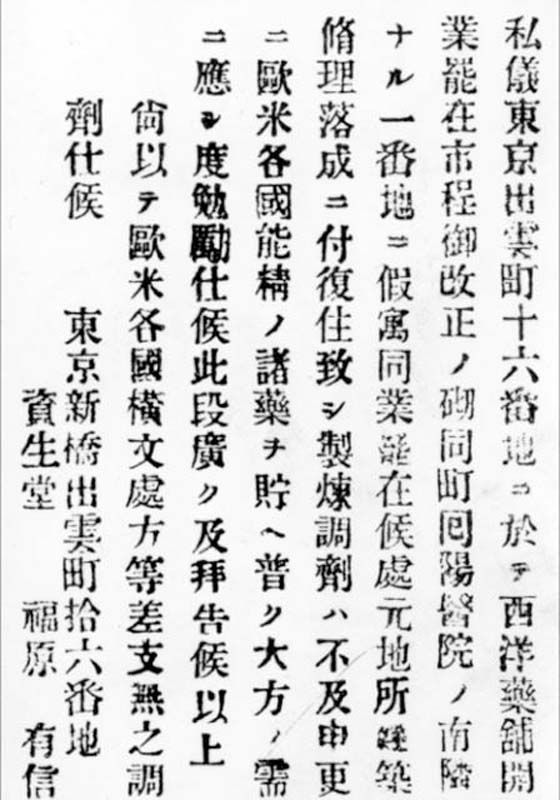 私儀東京出雲町十六番地ニ於テ西洋藥舖開
業罷在市程御改正ノ砌同町囘陽醫院ノ南隣
ナル一番地ニ假寓同業罷在候處元地所經築
脩理落成ニ付復住致シ製煉調劑ハ不及申更
ニ歐米各國能精ノ諸藥ヲ貯ヘ普ク大方ノ需
ニ應シ度勉勵仕候此段廣ク及拜告候以上
尙以テ歐米各國橫文處方等差支無之調
劑仕候
東京新橋出雲町拾六番地
資生堂 福原 有信